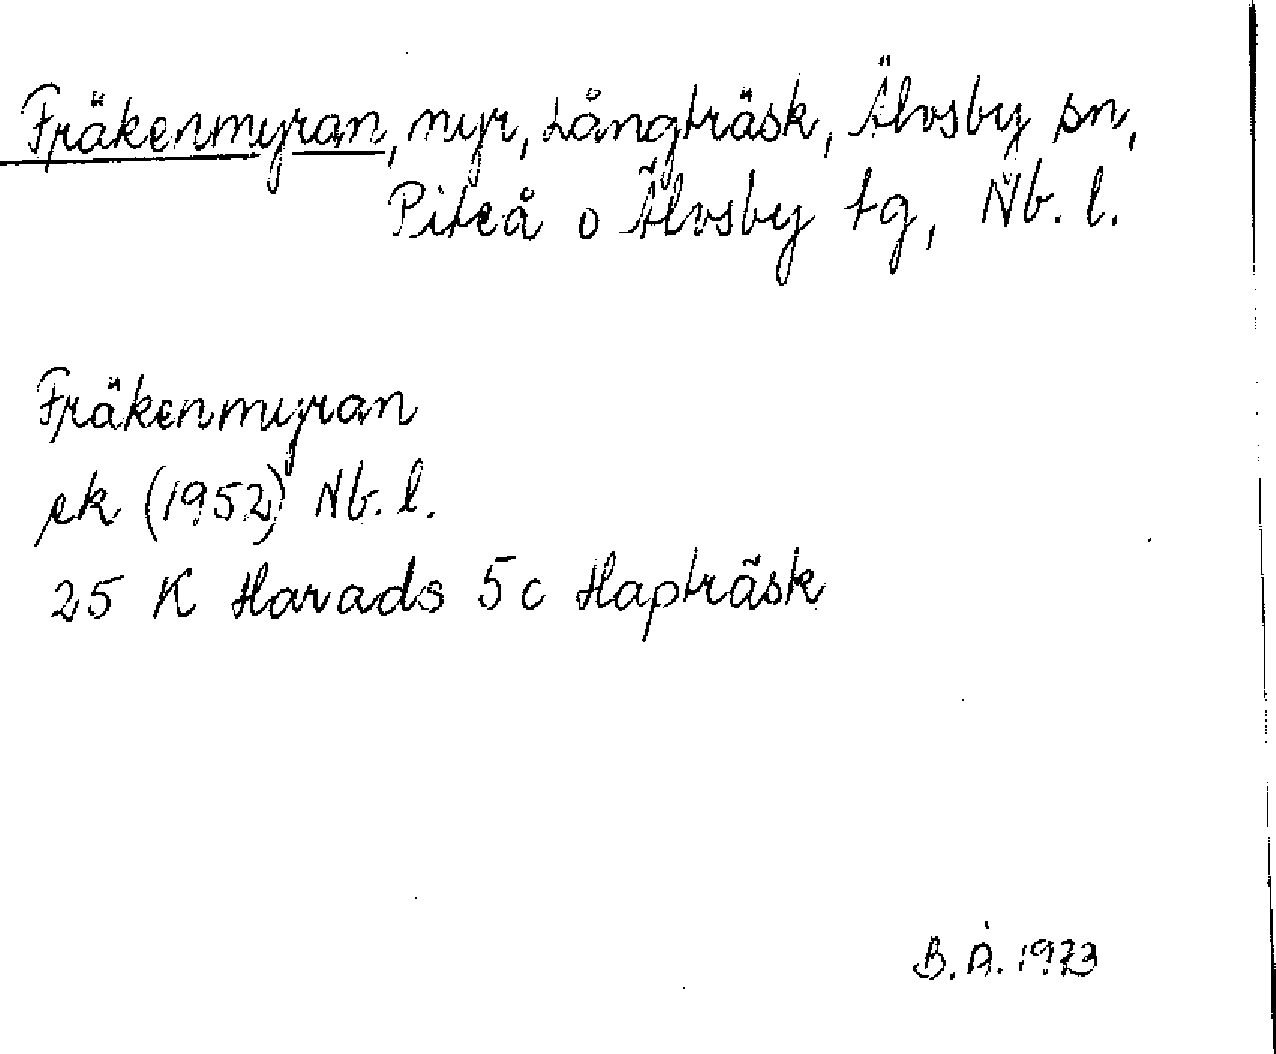 Fräkenmyran, myr, Långträsk, Älvsby sn,
Piteå o Älvsby tg, Nb. l.
Fräkenmyran
ek (1952) Nb. l.
25 K Harads 5c Hapträsk
B.Å. 1973